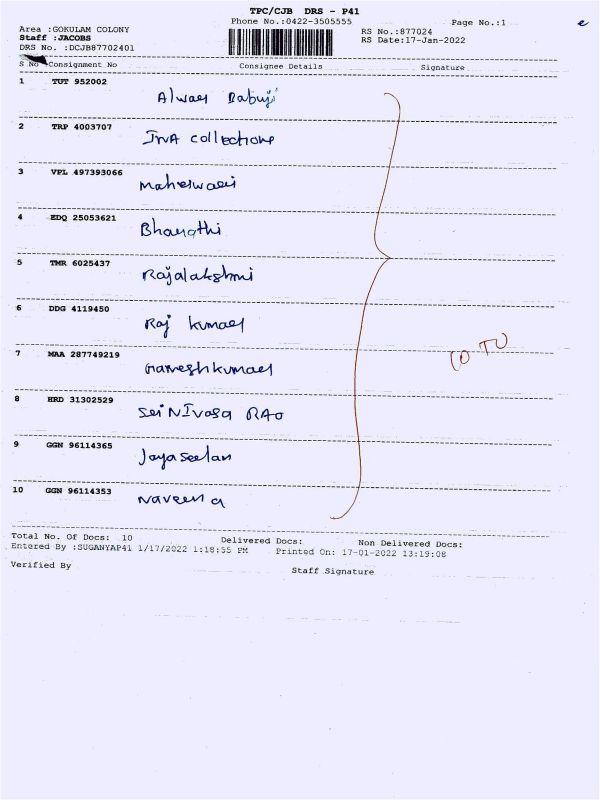 TPC/CJB DRS - P41
Phone No.:0422-3505555
Page No.:1
e
Area :GOKULAM COLONY
Staff :JACOBS
DRS No. :DCJB87702401
RS No.:877024
RS Date:17-Jan-2022
S No Consignment No Consignee Details Signature
1 TUT 952002 Alwar Babuji
2 TRP 4003707 collections
3 VPL 497393066 Maheswari
4 EDQ 25053621 Bharathi
5 TMR 6025437 Rajalakshmi
6 DDG 4119450 Raj Kumar
7 MAA 287749219 Ganeshkumar
8 HRD 31302529 Sri NIvasa RAO
9 GGN 96114365 Jayaseelan
10 GGN 96114353 Naveena
Total No. Of Docs: 10 Delivered Docs: Non Delivered Docs:
Entered By :SUGANYAP41 1/17/2022 1:18:55 PM Printed On: 17-01-2022 13:19:08
Verified By Staff Signature